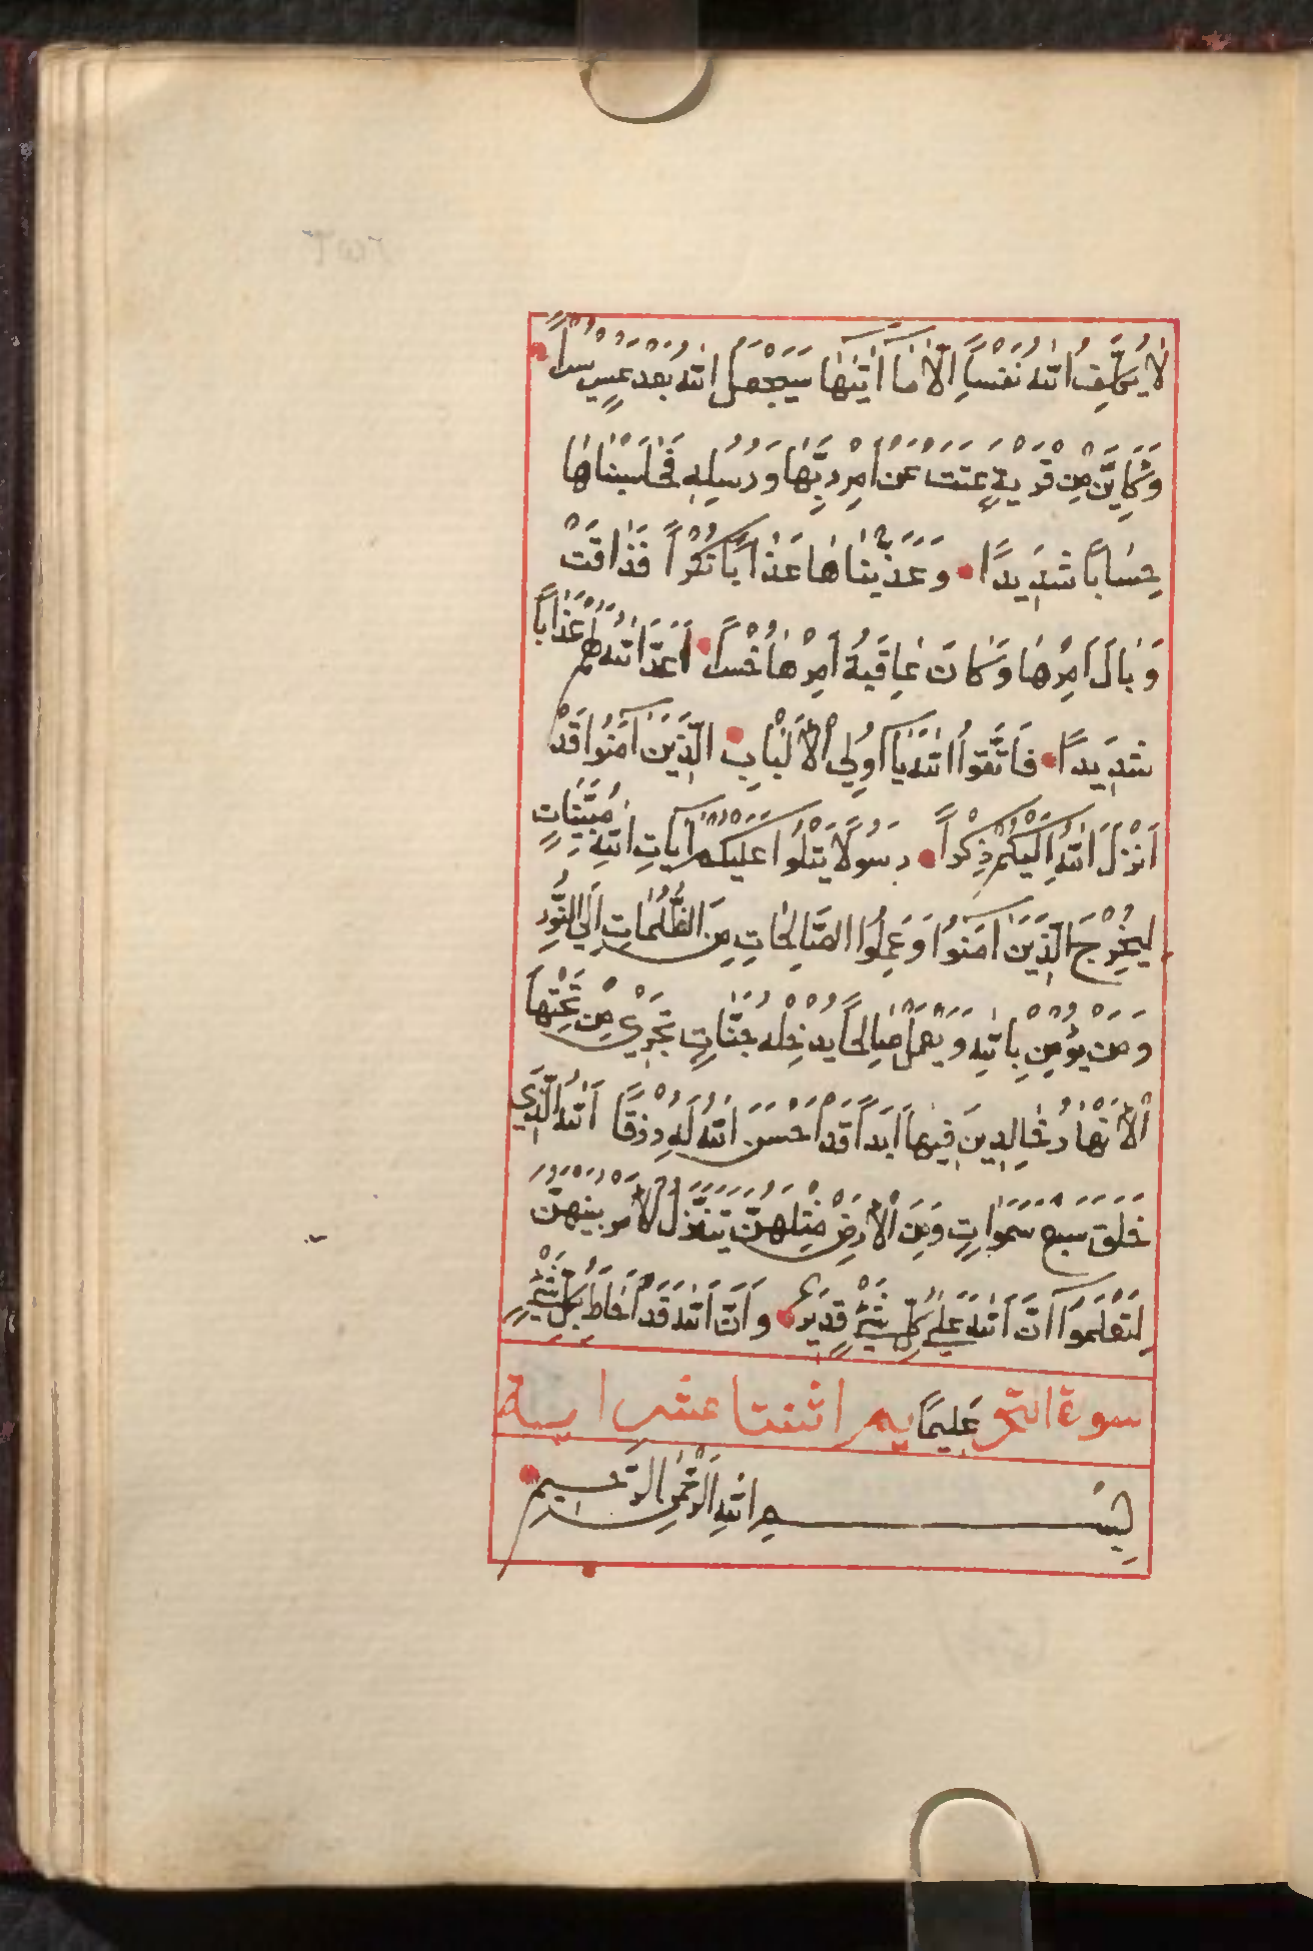 لَا يُكَلِّفُ اللّٰهُ نَفْسًا اِلَّا مَا اٰتٰيهَا سَيَجْعَلُ اللّٰهُ بَعْدَ عُسْرٍ يُسْرًا
وَكَاَيِّنْ مِنْ قَرْيَةٍ عَتَتْ عَنْ اَمْرِ رَبِّهَا وَرُسُلِهِ فَحَاسَبْنَاهَا
حِسَابًا شَدِيدًا وَعَذَّبْنَاهَا عَذَابًا نُكْرًا فَذَاقَتْ
وَبَالَ اَمْرِهَا وَكَانَ عَاقِبَةُ اَمْرِهَا خُسْرًا اَعَدَّ اللّٰهُ لَهُمْ عَذَابًا
شَدِيدًا فَاتَّقُوا اللّٰهَ يَا اُولِي الْاَلْبَابِ الَّذِينَ اٰمَنُوا قَدْ
اَنْزَلَ اللّٰهُ اِلَيْكُمْ ذِكْرًا رَسُولًا يَتْلُوا عَلَيْكُمْ اٰيَاتِ اللّٰهِ مُبَيِّنَاتٍ
لِيُخْرِجَ الَّذِينَ اٰمَنُوا وَعَمِلُوا الصَّالِحَاتِ مِنَ الظُّلُمَاتِ اِلَى النُّورِ
وَمَنْ يُؤْمِنْ بِاللّٰهِ وَيَعْمَلْ صَالِحًا يُدْخِلْهُ جَنَّاتٍ تَجْرِي مِنْ تَحْتِهَا
الْاَنْهَارُ خَالِدِينَ فِيهَا اَبَدًا قَدْ اَحْسَنَ اللّٰهُ لَهُ رِزْقًا اَللّٰهُ الَّذِي
خَلَقَ سَبْعَ سَمٰوَاتٍ وَمِنَ الْاَرْضِ مِثْلَهُنَّ يَتَنَزَّلُ الْاَمْرُ بَيْنَهُنَّ
لِتَعْلَمُوا اَنَّ اللّٰهَ عَلٰى كُلِّ شَيْءٍ قَدِيرٌ وَاَنَّ اللّٰهَ قَدْ اَحَاطَ بِكُلِّ شَيْءٍ
سورة التحر عِلْمًا يم اثنتا عشر اية
بِسْمِ اللّٰهِ الرَّحْمٰنِ الرَّحِيمِ